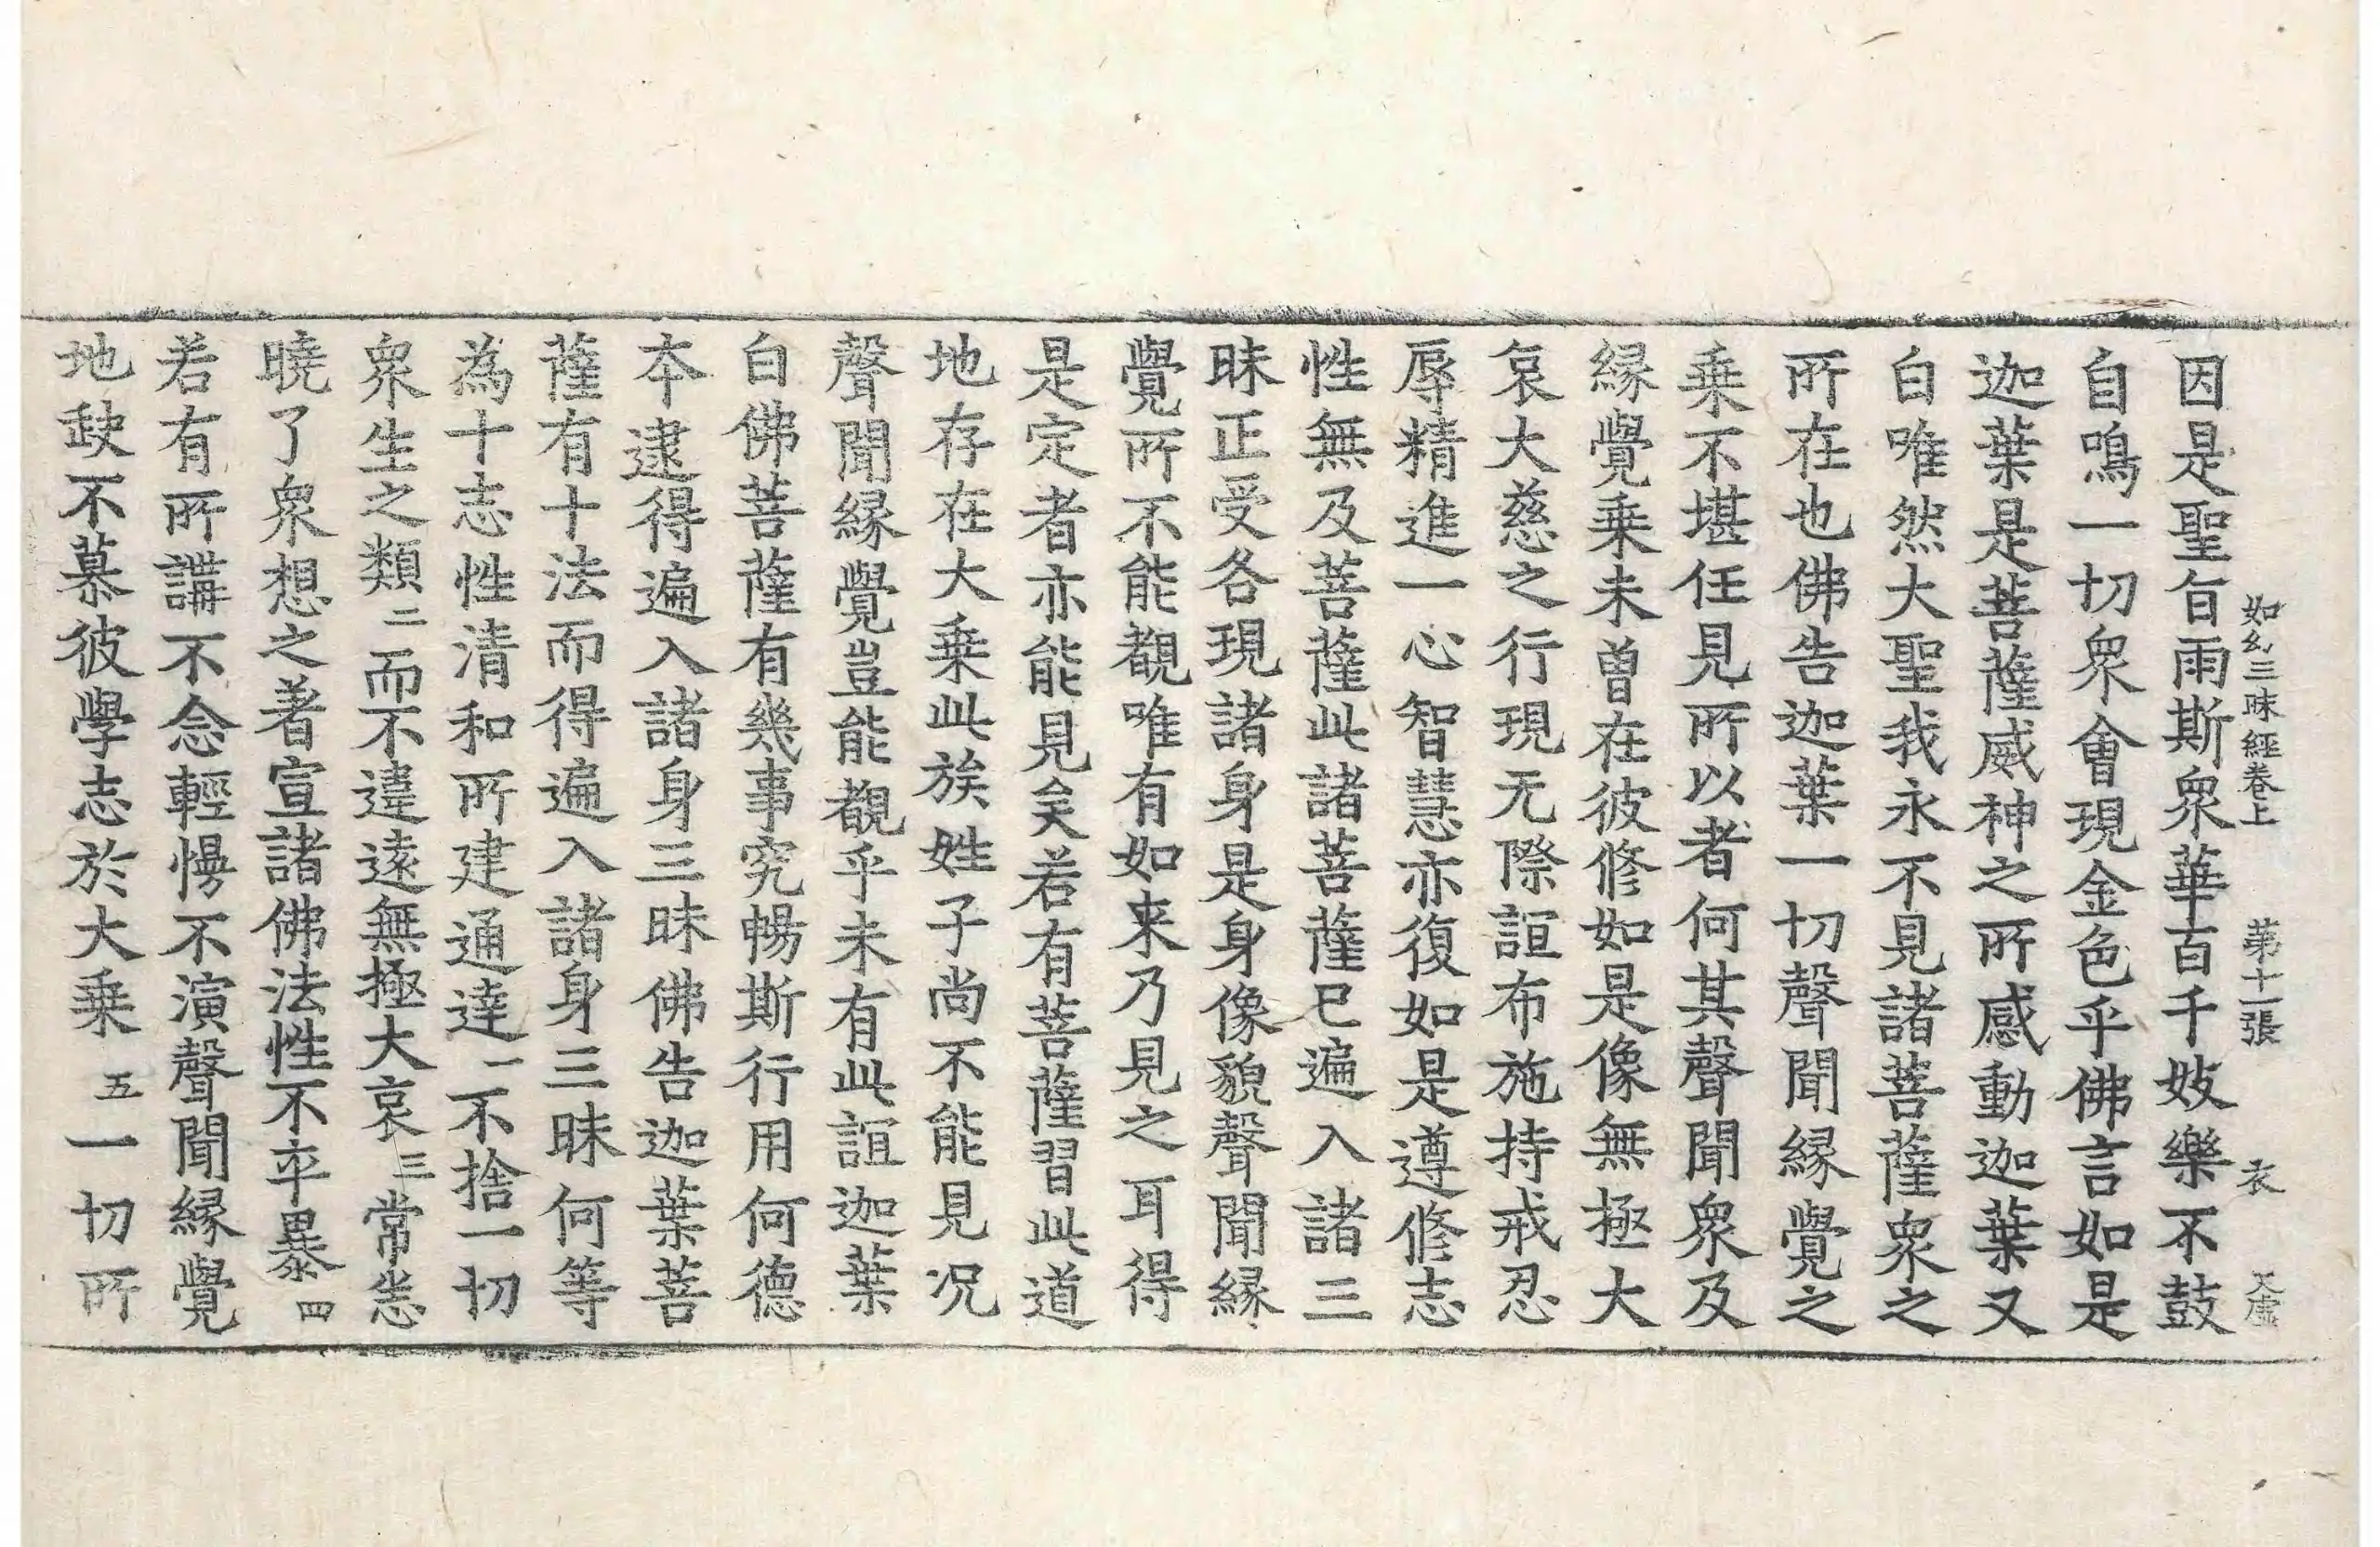 如幻三昧經卷上 第十一張 衣 天虛
因是聖旨雨斯衆華百千妓樂不鼓
自鳴一切衆會現金色乎佛言如是
迦葉是菩薩威神之所感動迦葉又
白唯然大聖我永不見諸菩薩衆之
所在也佛告迦葉一切聲聞縁覺之
乗不堪任見所以者何其聲聞衆及
縁覺乗未曽在彼修如是像無極大
哀大慈之行現无際誼布施持戒忍
辱精進一心智慧亦復如是遵修志
性無及菩薩此諸菩薩已遍入諸三
昧正受各現諸身是身像貌聲聞縁
覺所不能覩唯有如来乃見之耳得
是定者亦能見矣若有菩薩習此道
地存在大乗此族姓子尚不能見况
聲聞縁覺豈能覩乎未有此誼迦葉
白佛菩薩有幾事究暢斯行用何德
本逮得遍入諸身三昧佛告迦葉菩
薩有十法而得遍入諸身三昧何等
為十志性清和所建通達一不捨一切
衆生之類二而不違遠無極大哀三常恙
曉了衆想之著宣諸佛法性不卒暴四
若有所講不念輕慢不演聲聞縁覺
地䟽不慕彼學志於大乗五一切所